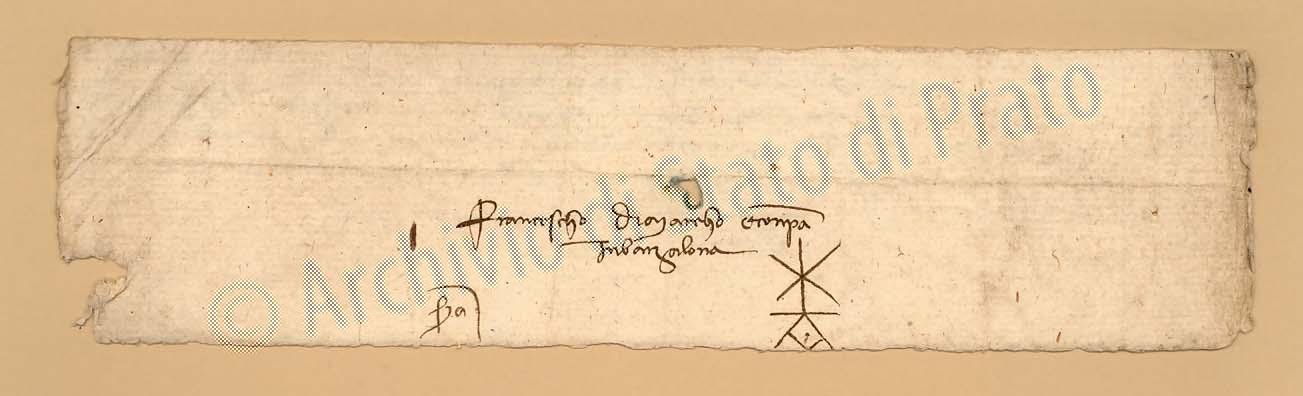 Franciescho Dimarcho e conpa
Inbarzalona
Pa
© Archivio di Stato di Prato